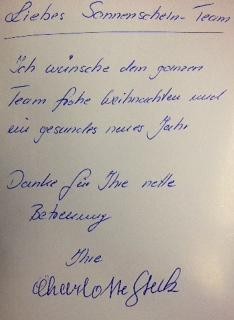 Liebes Sonnenschein-Team
Ich wünsche dem ganzen
Team frohe Weihnachten und
ein gesundes neues Jahr
Danke für Ihre nette
Betreuung
Ihre
Charlotte